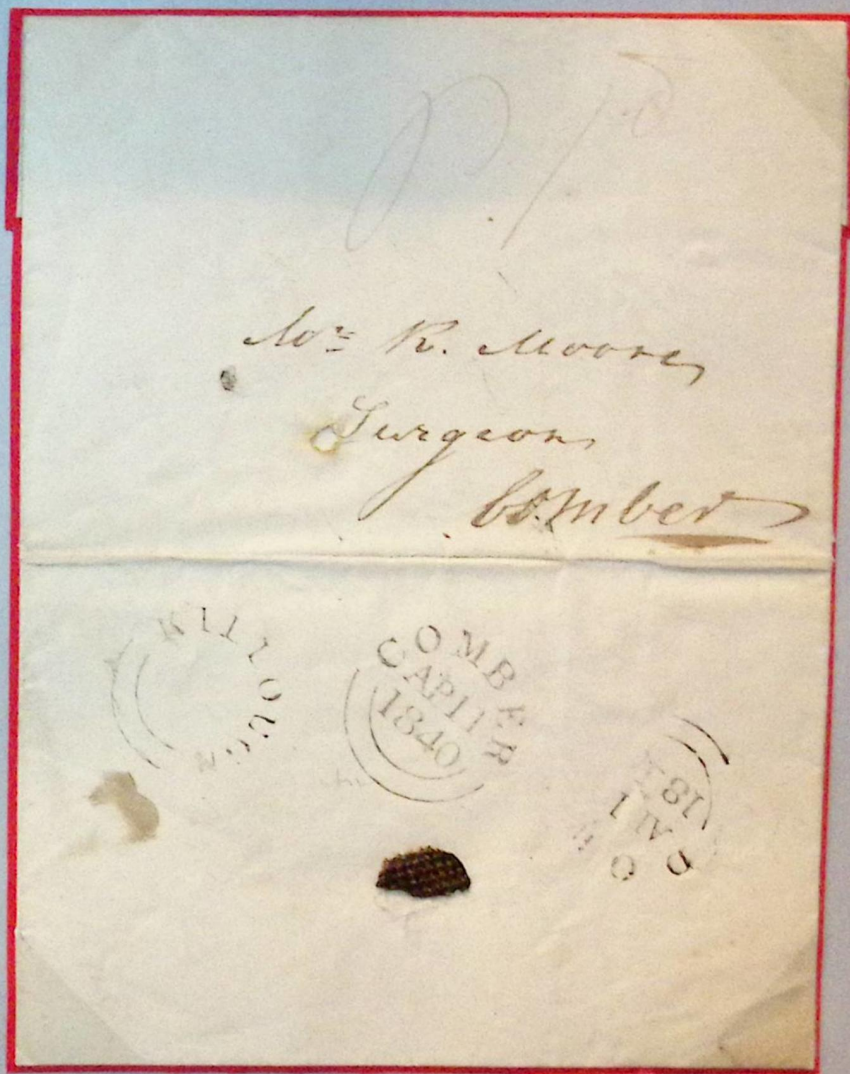 P. 1d
Mr R. Moore,
Surgeon,
Comber
KILLOUGH
COMBER
AP 11
1840